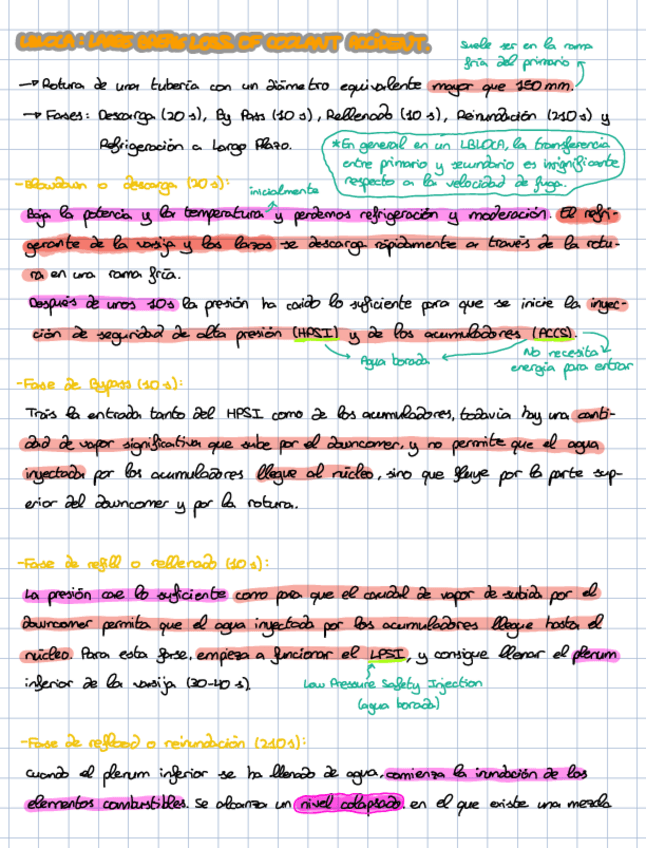 LBLOCA: LARGE BREAK LOSS OF COOLANT ACCIDENT.
suele ser en la rama
fría del primario
→ Rotura de una tubería con un diámetro equivalente mayor que 150mm.
→ Fases: Descarga (20 s), By Pass (10 s), Rellenado (10 s), Reinundación (210 s) y
Refrigeración a Largo Plazo.
*En general en un LBLOCA, la transferencia
entre primario y secundario es insignificante
respecto a la velocidad de fuga.
-Blowdown o descarga (20 s):
inicialmente
Baja la potencia y la temperatura y perdemos refrigeración y moderación. El refri-
gerante de la vasija y los lazos se descarga rápidamente a través de la rotu-
ra en una rama fría.
Después de unos 10s la presión ha caído lo suficiente para que se inicie la inyec-
ción de seguridad de alta presión (HPSI) y de los acumuladores (ACCS).
Agua borada
No necesita
energía para entrar
-Fase de Bypass (10 s):
Trás la entrada tanto del HPSI como de los acumuladores, todavía hay una canti-
dad de vapor significativa que sube por el downcomer, y no permite que el agua
inyectada por los acumuladores llegue al núcleo, sino que fluye por la parte sup-
erior del downcomer y por la rotura.
-Fase de refill o rellenado (10 s):
La presión cae lo suficiente como para que el caudal de vapor de subida por el
downcomer permita que el agua inyectada por los acumuladores llegue hasta el
núcleo. Para esta fase, empeza a funcionar el LPSI, y consigue llenar el plenum
inferior de la vasija (30-40 s).
Low Pressure Safety Injection
(agua borada)
-Fase de reflood o reinundación (210 s):
Cuando el plenum inferior se ha llenado de agua, comienza la inundación de los
elementos combustibles. Se alcanza un nivel colapsado en el que existe una mezcla